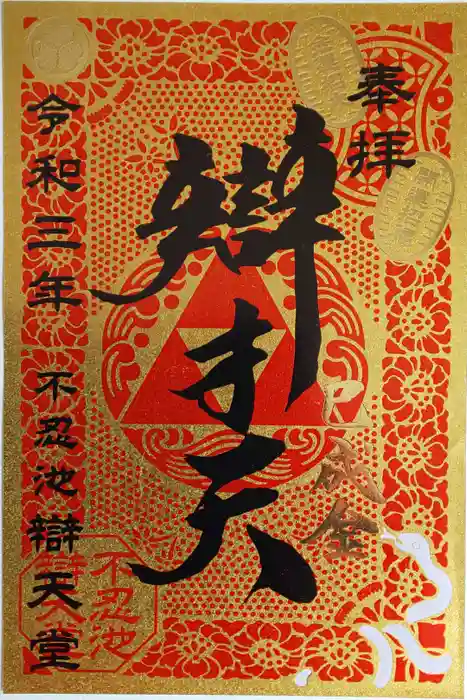 奉拝
辯才天
巳成金
令和三年 不忍池辯天堂
不忍池